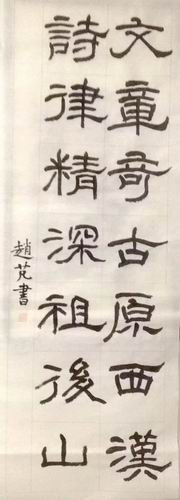 文章奇古原西漢
詩律精深祖後山
趙芃書